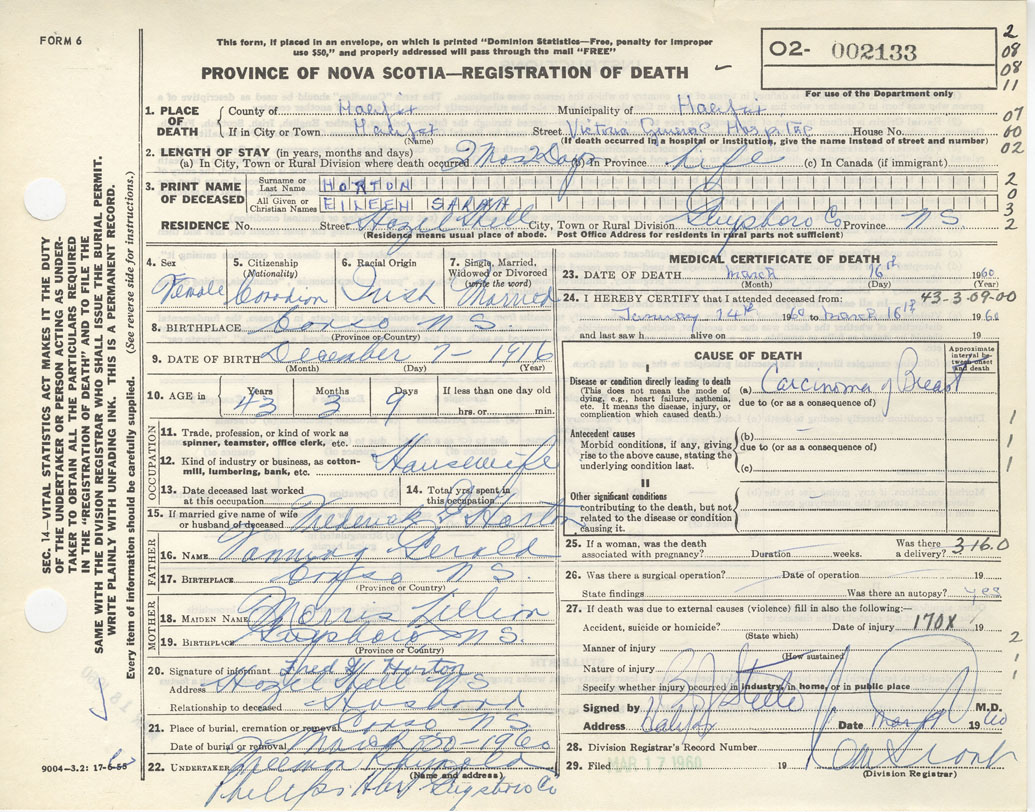 FORM 6
This form, if placed in an envelope, on which is printed "Dominion Statistics—Free, penalty for improper
use $50," and properly addressed will pass through the mail "FREE"
PROVINCE OF NOVA SCOTIA—REGISTRATION OF DEATH
02- 002133
For use of the Department only
2
08
08
11
07
60
02
2
0
3
2
SEC. 14—VITAL STATISTICS ACT MAKES IT THE DUTY
OF THE UNDERTAKER OR PERSON ACTING AS UNDER-
TAKER TO OBTAIN ALL THE PARTICULARS REQUIRED
IN THE "REGISTRATION OF DEATH" AND TO FILE THE
SAME WITH THE DIVISION REGISTRAR WHO SHALL ISSUE THE BURIAL PERMIT.
WRITE PLAINLY WITH UNFADING INK. THIS IS A PERMANENT RECORD.
Every item of information should be carefully supplied. (See reverse side for instructions.)
1. PLACE OF DEATH
County of Halifax Municipality of Halifax
If in City or Town Halifax Street Victoria General Hospital House No.
(Name) (If death occurred in a hospital or institution, give the name instead of street and number)
2. LENGTH OF STAY (in years, months and days)
(a) In City, Town or Rural Division where death occurred 2 Mos 2 Days (b) In Province Life (c) In Canada (if immigrant)
3. PRINT NAME OF DECEASED
Surname or Last Name HORTON
All Given or Christian Names EILEEN SARAH
RESIDENCE No. Street Hazel Hill City, Town or Rural Division Guysboro Co Province N S
(Residence means usual place of abode. Post Office Address for residents in rural parts not sufficient)
4. Sex Female
5. Citizenship (Nationality) Canadian
6. Racial Origin Irish
7. Single, Married, Widowed or Divorced (write the word) Married
8. BIRTHPLACE Canso N S.
(Province or Country)
9. DATE OF BIRTH December 7 - 1916
(Month) (Day) (Year)
10. AGE in Years 43 Months 3 Days 9 If less than one day old
hrs. or min.
OCCUPATION
11. Trade, profession, or kind of work as spinner, teamster, office clerk, etc.
12. Kind of industry or business, as cotton-mill, lumbering, bank, etc. Housewife
13. Date deceased last worked at this occupation
14. Total yrs. spent in this occupation
15. If married give name of wife or husband of deceased Frederick Horton
FATHER
16. NAME Fanning Gerald
17. BIRTHPLACE Canso N S.
(Province or Country)
MOTHER
18. MAIDEN NAME Morris Lillian
19. BIRTHPLACE Guysboro N S.
(Province or Country)
20. Signature of informant Fred W Horton
Address Hazel Hill N S
Relationship to deceased Husband
21. Place of burial, cremation or removal Canso N S
Date of burial or removal March 20 1960
22. UNDERTAKER
(Name and address)
Guysboro Co
9004-3.2: 17-6-55
MEDICAL CERTIFICATE OF DEATH
23. DATE OF DEATH March 16th 1960
(Month) (Day) (Year)
24. I HEREBY CERTIFY that I attended deceased from: 43-3-09-00
January 14th 1960 to March 16th 1960
and last saw h alive on 19
CAUSE OF DEATH
Approximate interval between onset and death
I
Disease or condition directly leading to death
(This does not mean the mode of dying, e.g., heart failure, asthenia, etc. It means the disease, injury, or complication which caused death.)
(a) Carcinoma of Breast
due to (or as a consequence of)
Antecedent causes
Morbid conditions, if any, giving rise to the above cause, stating the underlying condition last.
(b)
due to (or as a consequence of)
(c)
II
Other significant conditions
contributing to the death, but not related to the disease or condition causing it.
1
1
1
25. If a woman, was the death associated with pregnancy? Duration weeks. Was there a delivery? 316.0
26. Was there a surgical operation? Date of operation 19
State findings Was there an autopsy? yes
27. If death was due to external causes (violence) fill in also the following:—
Accident, suicide or homicide? Date of injury 170X 19
(State which)
Manner of injury
(How sustained)
Nature of injury
Specify whether injury occurred in industry, in home, or in public place
2
1
1
Signed by M.D.
Address Halifax Date 1960
28. Division Registrar's Record Number
29. Filed MAR 17 1960 19
(Division Registrar)